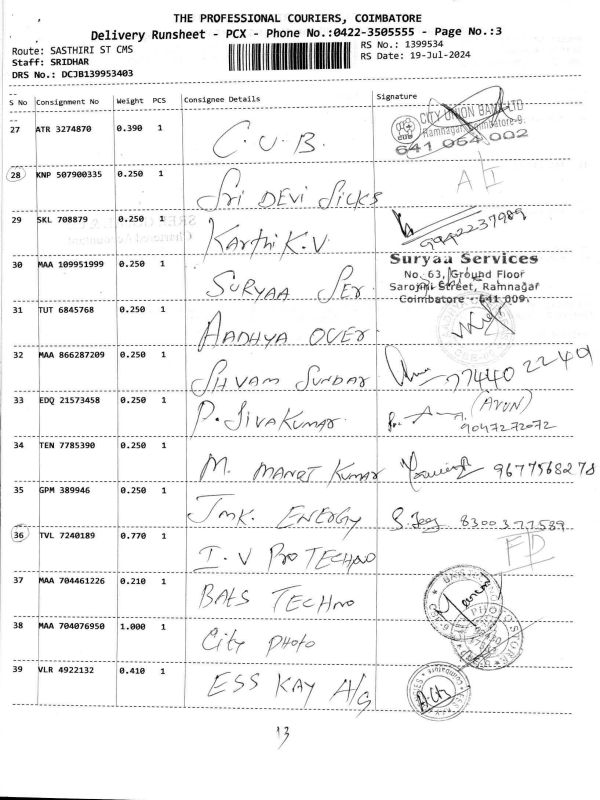 THE PROFESSIONAL COURIERS, COIMBATORE
Delivery Runsheet - PCX - Phone No.:0422-3505555 - Page No.:3
Route: SASTHIRI ST CMS RS No.: 1399534
Staff: SRIDHAR RS Date: 19-Jul-2024
DRS No.: DCJB139953403
S No Consignment No Weight PCS Consignee Details Signature
27 ATR 3274870 0.390 1 C.U.B. CITY UNION BANK LTD
Ramnagar, Coimbatore-9.
641 064 002
28 KNP 507900335 0.250 1 Sri DEVi SilKS A/I
29 SKL 708879 0.250 1 Karthi K.V 9942237989
30 MAA 109951999 0.250 1 SURYAA Ser Suryaa Services
No. 63, Ground Floor
Sarojini Street, Ramnagar
Coimbatore - 641 009.
31 TUT 6845768 0.250 1 AADHYA OVER
32 MAA 866287209 0.250 1 SHVAM SUNDAR 77440 22401
33 EDQ 21573458 0.250 1 P. SIVAKUMAR (ARUN)
9047272072
34 TEN 7785390 0.250 1 M. MANOJ KUMAR 9677568278
35 GPM 389946 0.250 1 JMK. ENERGY 8300377589
36 TVL 7240189 0.770 1 I.V PRO TECHNO FD
37 MAA 704461226 0.210 1 BALS TECHNO
38 MAA 704076950 1.000 1 City PHOTO
39 VLR 4922132 0.410 1 ESS KAY A/G
13